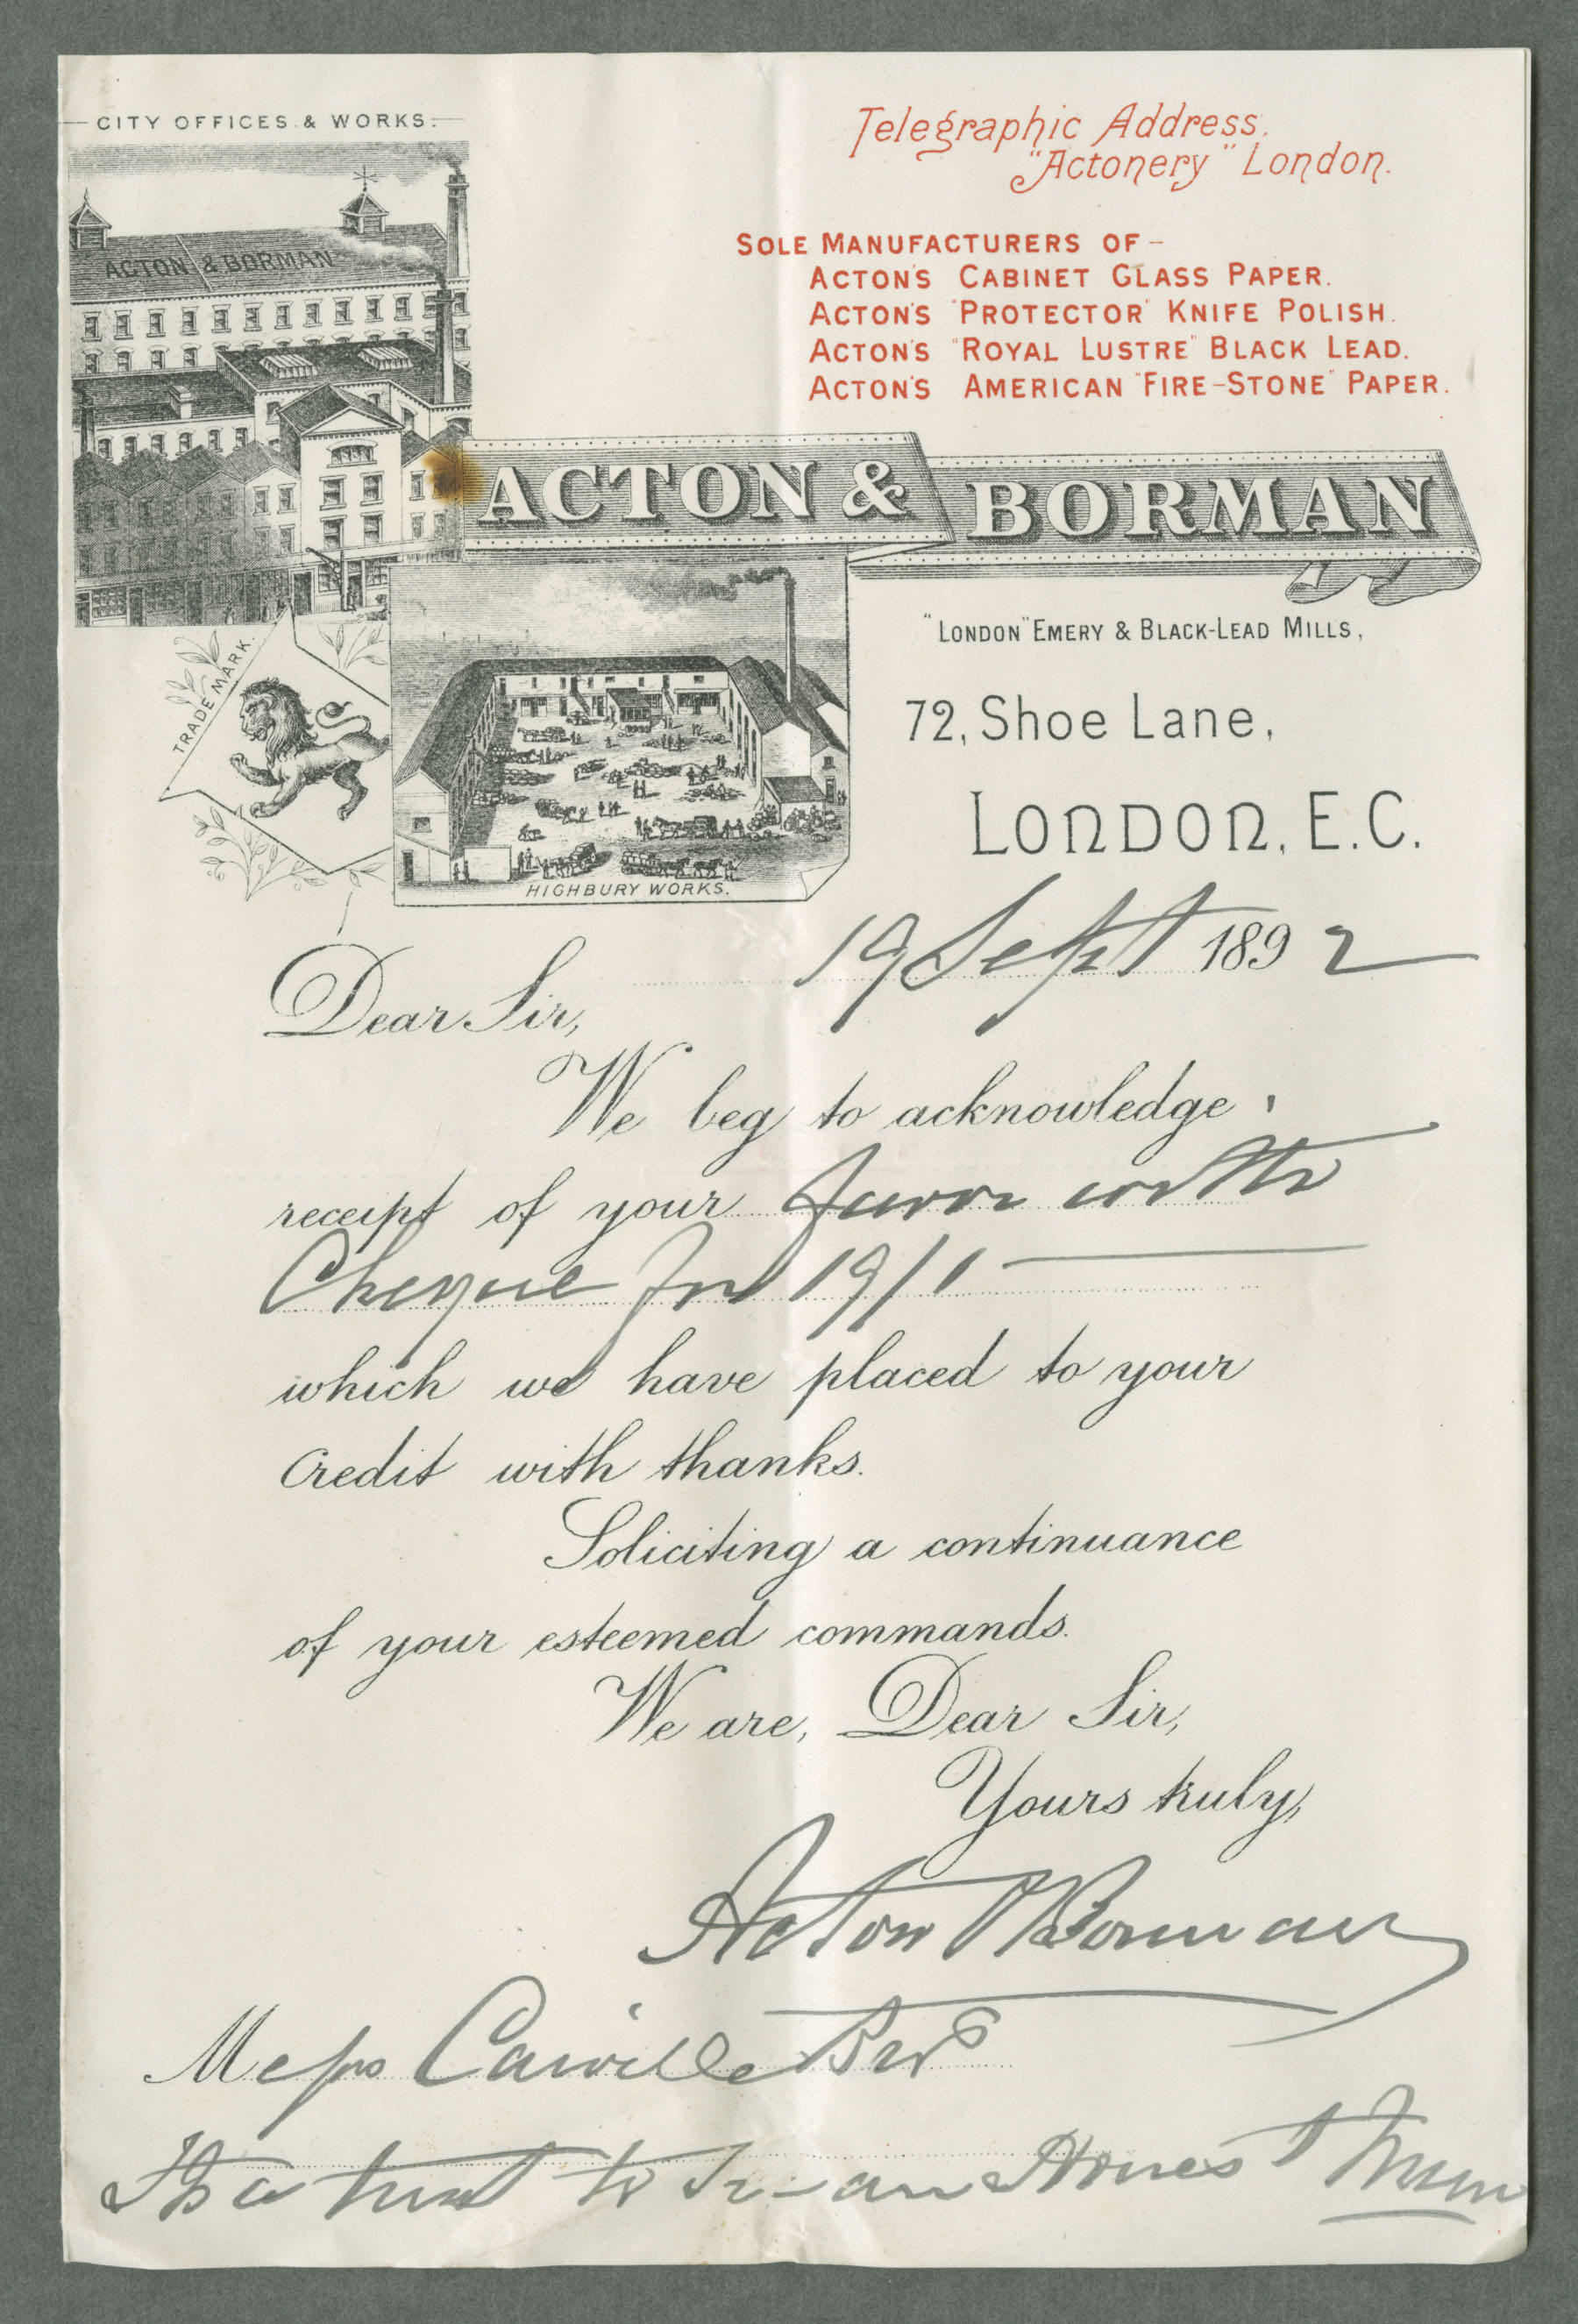 CITY OFFICES & WORKS.
ACTON & BORMAN
Telegraphic Address,
"Actonery" London.
SOLE MANUFACTURERS OF —
ACTON'S CABINET GLASS PAPER.
ACTON'S "PROTECTOR" KNIFE POLISH.
ACTON'S "ROYAL LUSTRE" BLACK LEAD.
ACTON'S AMERICAN "FIRE-STONE" PAPER.
ACTON & BORMAN
"LONDON" EMERY & BLACK-LEAD MILLS,
72, Shoe Lane,
LONDON, E.C.
TRADE MARK.
HIGHBURY WORKS.
19 Sept 1892
Dear Sir,
We beg to acknowledge
receipt of your favor with
Cheque for 19/1
which we have placed to your
Credit with thanks.
Soliciting a continuance
of your esteemed commands.
We are, Dear Sir,
Yours truly,
Acton & Borman
Messrs Bros
to an Honest Man